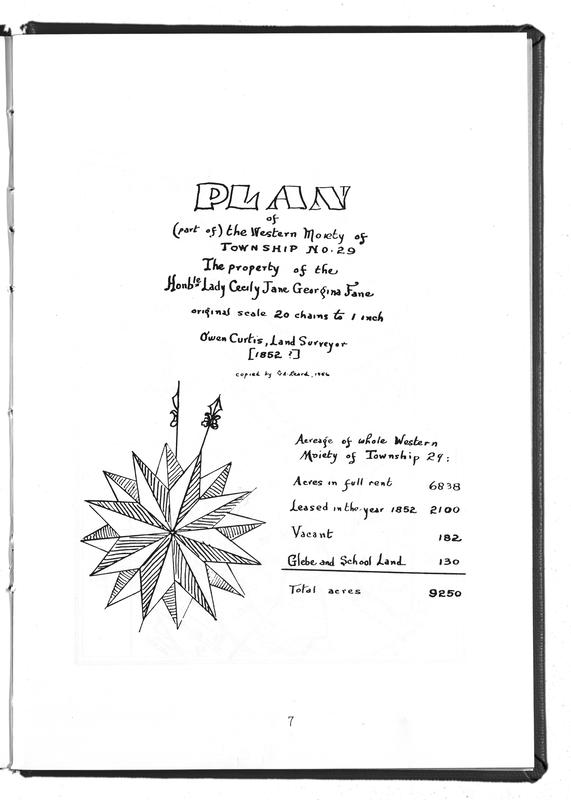 PLAN
of
(part of) the Western Moiety of
TOWNSHIP No. 29
The property of the
Honble Lady Cecily Jane Georgina Fane
original scale 20 chains to 1 inch
Owen Curtis, Land Surveyor
[1852 ?]
copied by
Acreage of whole Western
Moiety of Township 29:
Acres in full rent 6838
Leased in the year 1852 2100
Vacant 182
Glebe and School Land 130
Total acres 9250
7